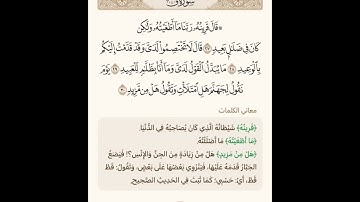 ۞ قَالَ قَرِينُهُۥ رَبَّنَا مَآ أَطْغَيْتُهُۥ وَلَٰكِن
كَانَ فِى ضَلَٰلٍۭ بَعِيدٍ ٢٧ قَالَ لَا تَخْتَصِمُوا۟ لَدَىَّ وَقَدْ قَدَّمْتُ إِلَيْكُم
بِٱلْوَعِيدِ ٢٨ مَا يُبَدَّلُ ٱلْقَوْلُ لَدَىَّ وَمَآ أَنَا۠ بِظَلَّٰمٍ لِّلْعَبِيدِ ٢٩ يَوْمَ
نَقُولُ لِجَهَنَّمَ هَلِ ٱمْتَلَأْتِ وَتَقُولُ هَلْ مِن مَّزِيدٍ ٣٠
معاني الكلمات
﴿قَرِينُهُ﴾ شَيْطَانُهُ الَّذِي كَانَ يُصَاحِبُهُ فِي الدُّنْيَا.
﴿مَا أَطْغَيْتُهُ﴾ مَا أَضْلَلْتُهُ.
﴿هَلْ مِنْ مَزِيدٍ﴾ هَلْ مِنْ زِيَادَةٍ مِنَ الجِنِّ وَالإِنْسِ؟! فَيَضَعُ
الجَبَّارُ قَدَمَهُ عَلَيْهَا، فَيَنْزَوِي بَعْضُهَا عَلَى بَعْضٍ، وَتَقُولُ: قَطْ
قَطْ، أَيْ: حَسْبِي؛ كَمَا ثَبَتَ فِي الحَدِيثِ الصَّحِيحِ.